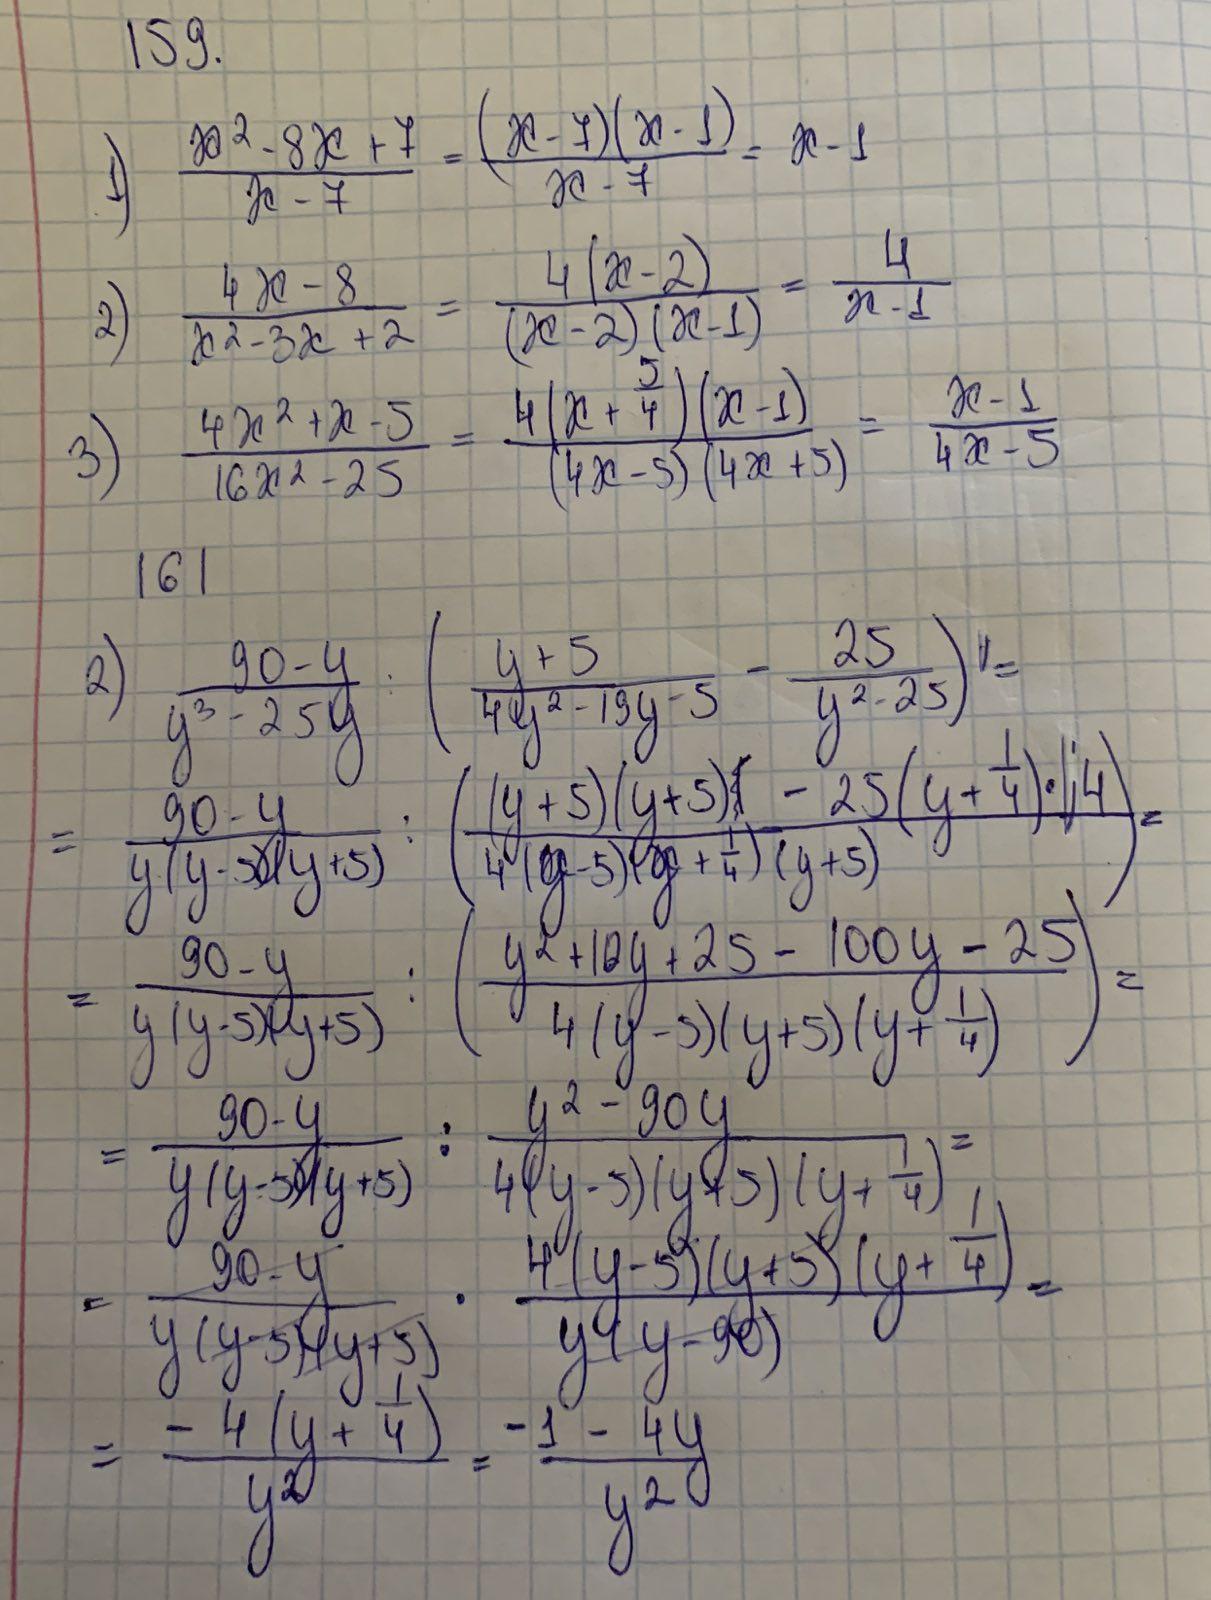 159.
1) (x² - 8x + 7)/(x - 7) = ((x - 7)(x - 1))/(x - 7) = x - 1
2) (4x - 8)/(x² - 3x + 2) = (4(x - 2))/((x - 2)(x - 1)) = 4/(x - 1)
3) (4x² + x - 5)/(16x² - 25) = (4(x + 5/4)(x - 1))/((4x - 5)(4x + 5)) = (x - 1)/(4x - 5)
161
2) (90 - y)/(y³ - 25y) : ((y + 5)/(4y² - 19y - 5) - 25/(y² - 25)) =
= (90 - y)/(y(y - 5)(y + 5)) : (((y + 5)(y + 5) - 25(y + 1/4)·4)/(4(y - 5)(y + 1/4)(y + 5))) =
= (90 - y)/(y(y - 5)(y + 5)) : ((y² + 10y + 25 - 100y - 25)/(4(y - 5)(y + 5)(y + 1/4))) =
= (90 - y)/(y(y - 5)(y + 5)) : (y² - 90y)/(4(y - 5)(y + 5)(y + 1/4)) =
= (90 - y)/(y(y - 5)(y + 5)) · (4(y - 5)(y + 5)(y + 1/4))/(y(y - 90)) =
= (-4(y + 1/4))/y² = (-1 - 4y)/y²